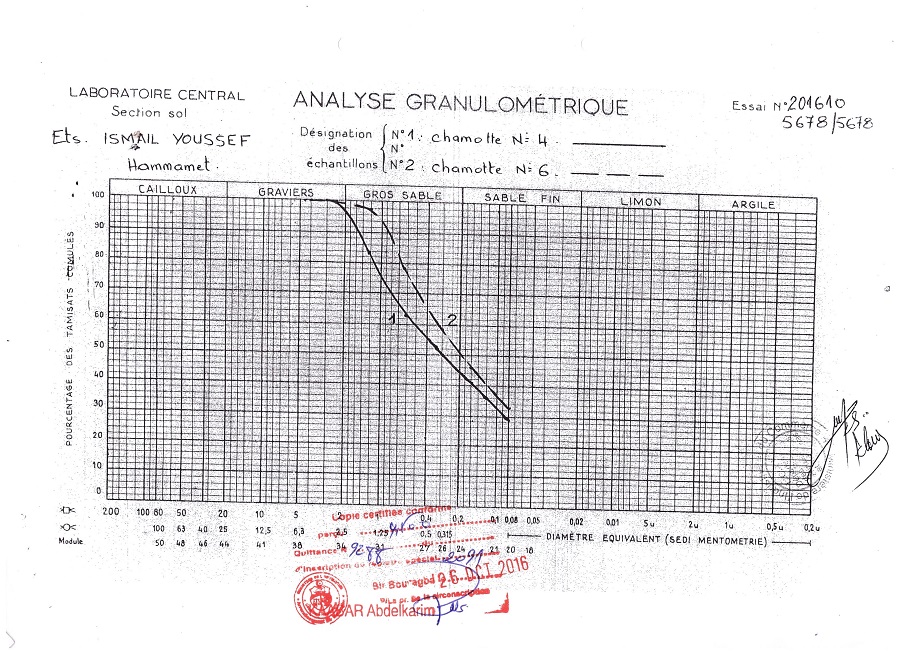 LABORATOIRE CENTRAL
Section sol
Ets. ISMAIL YOUSSEF
Hammamet.
ANALYSE GRANULOMÉTRIQUE
Désignation des échantillons
N° 1: chamotte N= 4.
N°
N° 2: chamotte N= 6.
Essai N° 201610
5678/5678
CAILLOUX GRAVIERS GROS SABLE SABLE FIN LIMON ARGILE
POURCENTAGE DES TAMISATS CUMULÉS
100
90
80
70
60
50
40
30
20
10
0
1 2
200 100 80 50 20 10 5 2 1 0,4 0,2 0,1 0,08 0,05 0,02 0,01 5u 2u 1u 0,5u 0,2u
100 63 40 25 12,5 6,3 2,5 1.25 0,5 0,315
Module 50 48 46 44 41 38 34 31 27 26 24 21 20 18
DIAMÈTRE EQUIVALENT (SEDI MENTOMETRIE)
Copie certifiée conforme
Quittance
d'inscription
26 OCT 2016
Abdelkarim